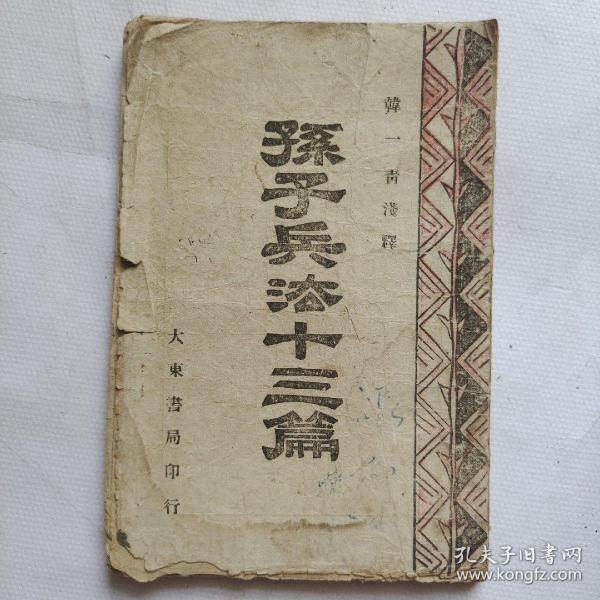 韓一青淺釋
孫子兵法十三篇
大東書局印行
孔夫子旧书网
www.kongfz.com